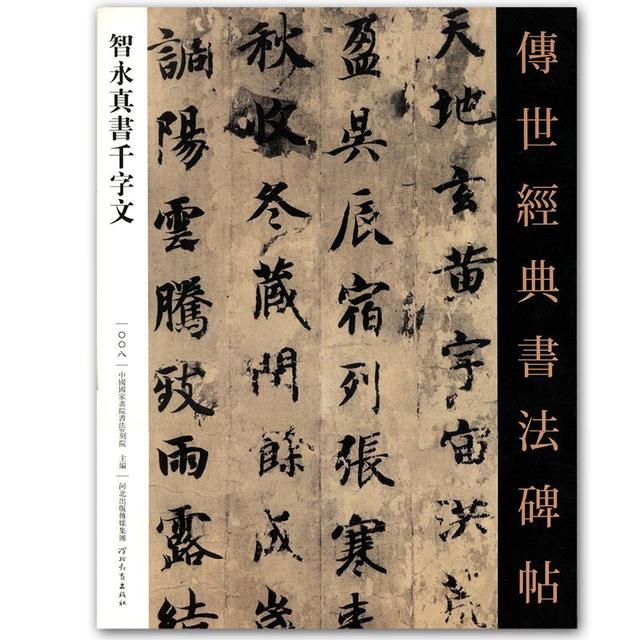 傳世經典書法碑帖
天地玄黄宇宙洪荒
盈昃辰宿列張寒來
秋收冬藏閏餘成歲
調陽雲騰致雨露結
智永真書千字文
〇〇八
中國國家畫院書法篆刻院 主編
河北出版傳媒集團
河北教育出版社